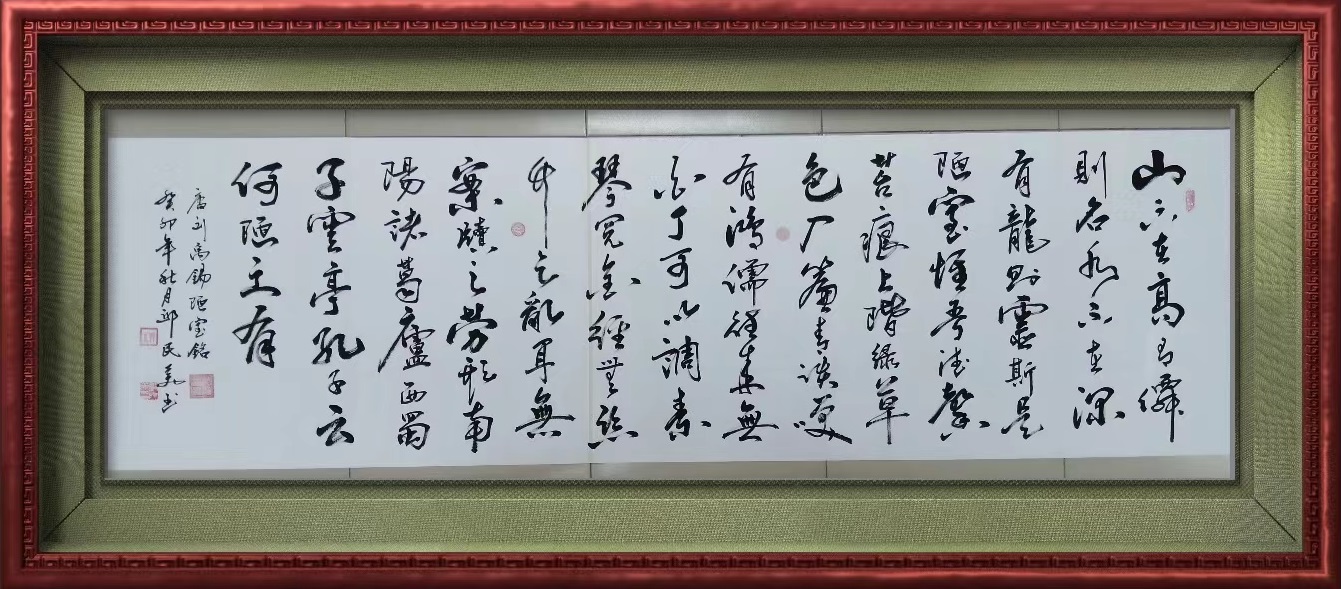 山不在高有僊
則名水不在深
有龍則靈斯是
陋室惟吾德馨
苔痕上階綠草
色入簾青談咲
有鴻儒往来無
白丁可以調素
琴閲金經無絲
竹之亂耳無
案牘之勞形南
陽諸葛廬西蜀
子雲亭孔子云
何陋之有
唐刘禹錫陋室銘
癸卯年秋月邱民书